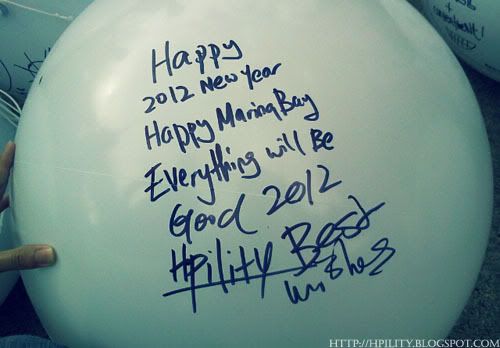 Happy
2012 New Year
Happy Marina Bay
Everything will Be
Good 2012
Hpility Best
wishes
HTTP://HPILITY.BLOGSPOT.COM